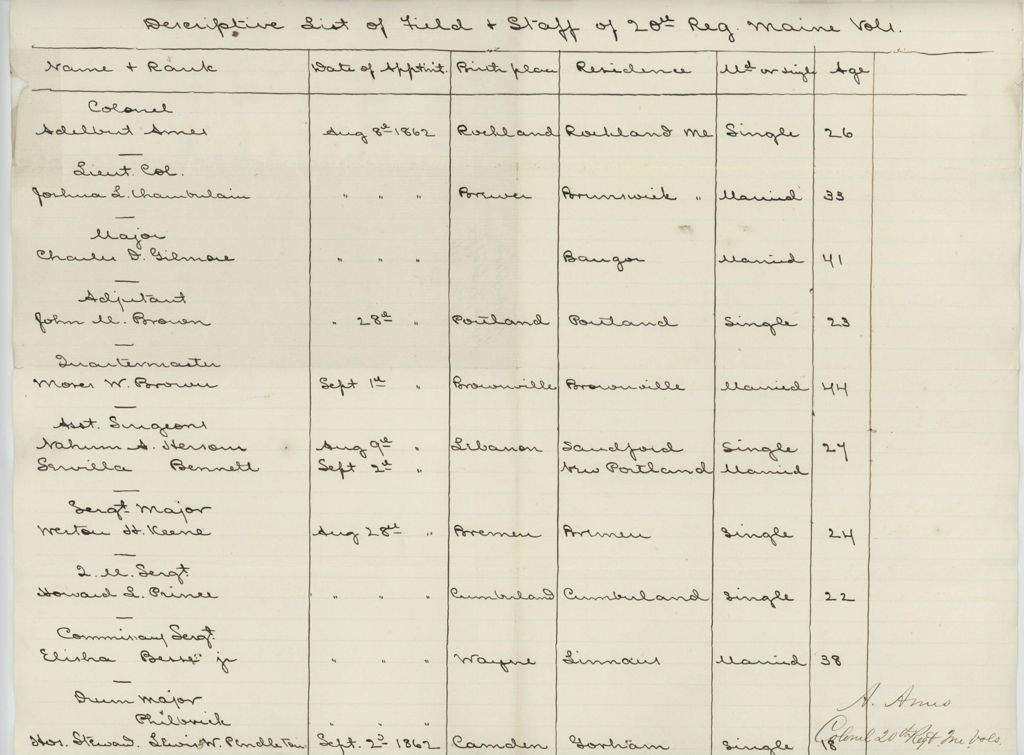 Descriptive List of Field + Staff of 20th Reg. Maine Vols.
Name + Rank Date of Apptmt. Birth place Residence Md or single Age
Colonel
Adelbert Ames Aug 8th 1862 Rockland Rockland Me Single 26
Lieut. Col.
Joshua L. Chamberlain " " " Brewer Brunswick " Married 33
Major
Charles D. Gilmore " " " Bangor Married 41
Adjutant
John M. Brown " 28th " Portland Portland Single 23
Quartermaster
Moses W. Brown Sept 1st " Brownville Brownville Married 44
Asst. Surgeons
Nahum A. Hersom Aug 9th " Lebanon Sandford Single 27
Servilla Bennett Sept 2d " New Portland Married
Sergt Major
Weston H. Keene Aug 28th " Bremen Bremen Single 24
Q. M. Sergt
Howard L. Prince " " " Cumberland Cumberland Single 22
Commissary Sergt.
Elisha Besse jr " " " Wayne Linnaus Married 38
Drum Major
Philbrick " " "
Hos. Steward. Lewis W. Pendleton Sept. 2d 1862 Camden Gorham Single 18
A. Ames
Colonel 20th Regt Me Vols.